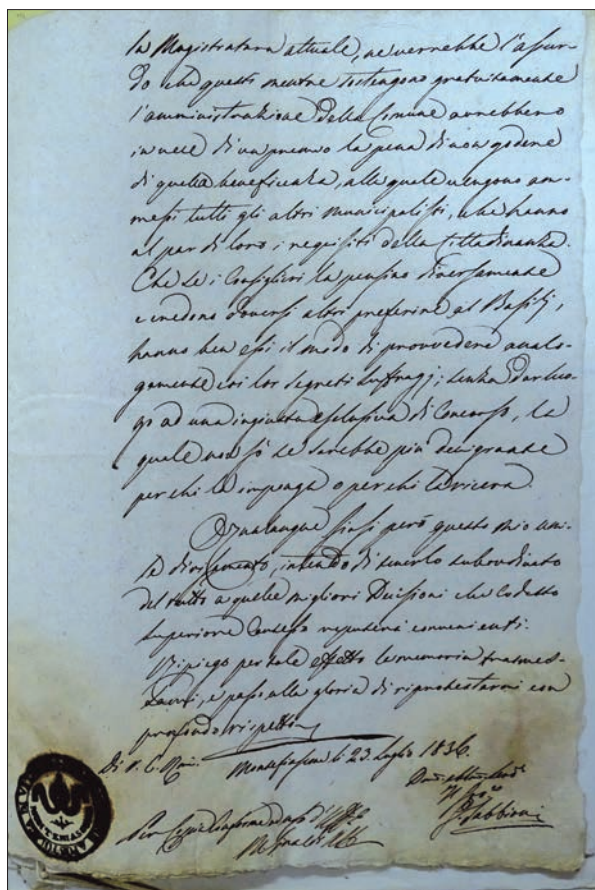 la Magistratura attuale, ne verrebbe l'assur-
do che questi mentre sostengono gratuitamente
l'amministrazione della Comune avrebbero
invece di un premio la pena di non godere
di quella beneficenza, alla quale vengono am-
messi tutti gli altri municipalisti, che hanno
al par di loro i requisiti della Cittadinanza.
Che se i Consiglieri la pensino diversamente
e credono doversi altri preferire al Basilj,
hanno ben essi il modo di provvedere analo-
gamente coi lor segreti suffragj; senza dar luo-
go ad una ingiusta esclusiva di Concorso, la
quale non sò se sarebbe più denigrante
per chi la impugna o per chi la riceva.
Qualunque siasi però questo mio umi-
le divisamento, intendo di tenerlo subordinato
del tutto a quelle migliori Decisioni che codesto
Superiore Consesso reputerà convenienti.
Ripiego per tale effetto le memoria trasmes-
, e passo alla gloria di riprotestarmi con
profondo rispetto
Di V. E. Rma. Montefiascone li 23. Luglio 1836.
Per Copia conforme